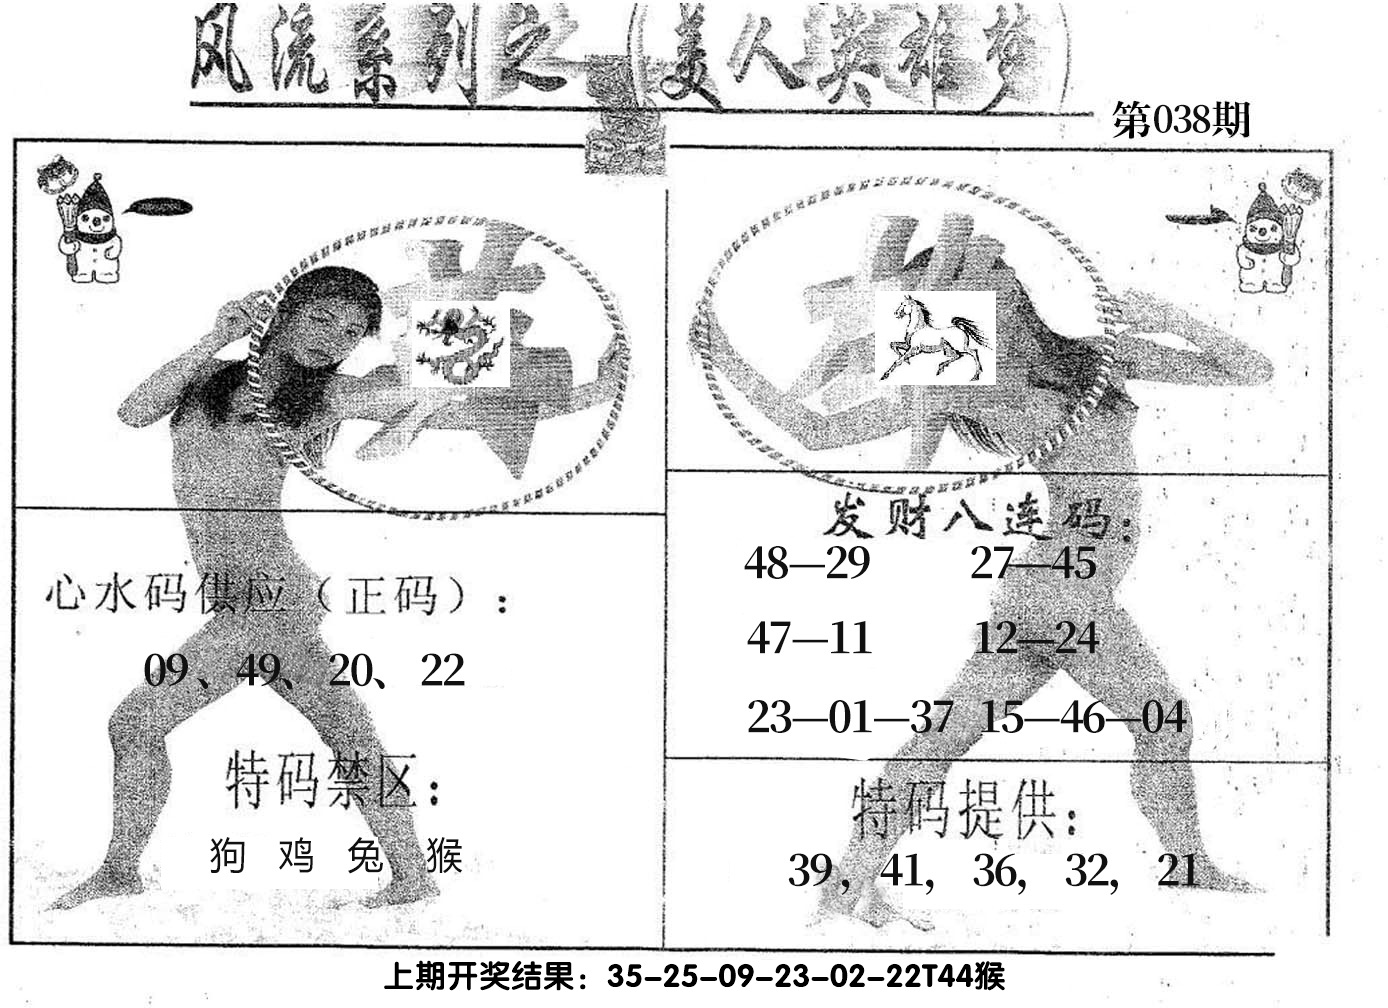 风流系列之（美人英雄梦）
第038期
美
雄
心水码供应（正码）：
09、49、20、22
特码禁区：
狗 鸡 兔 猴
发财八连码：
48—29 27—45
47—11 12—24
23—01—37 15—46—04
特码提供：
39， 41， 36， 32， 21
上期开奖结果：35-25-09-23-02-22T44猴